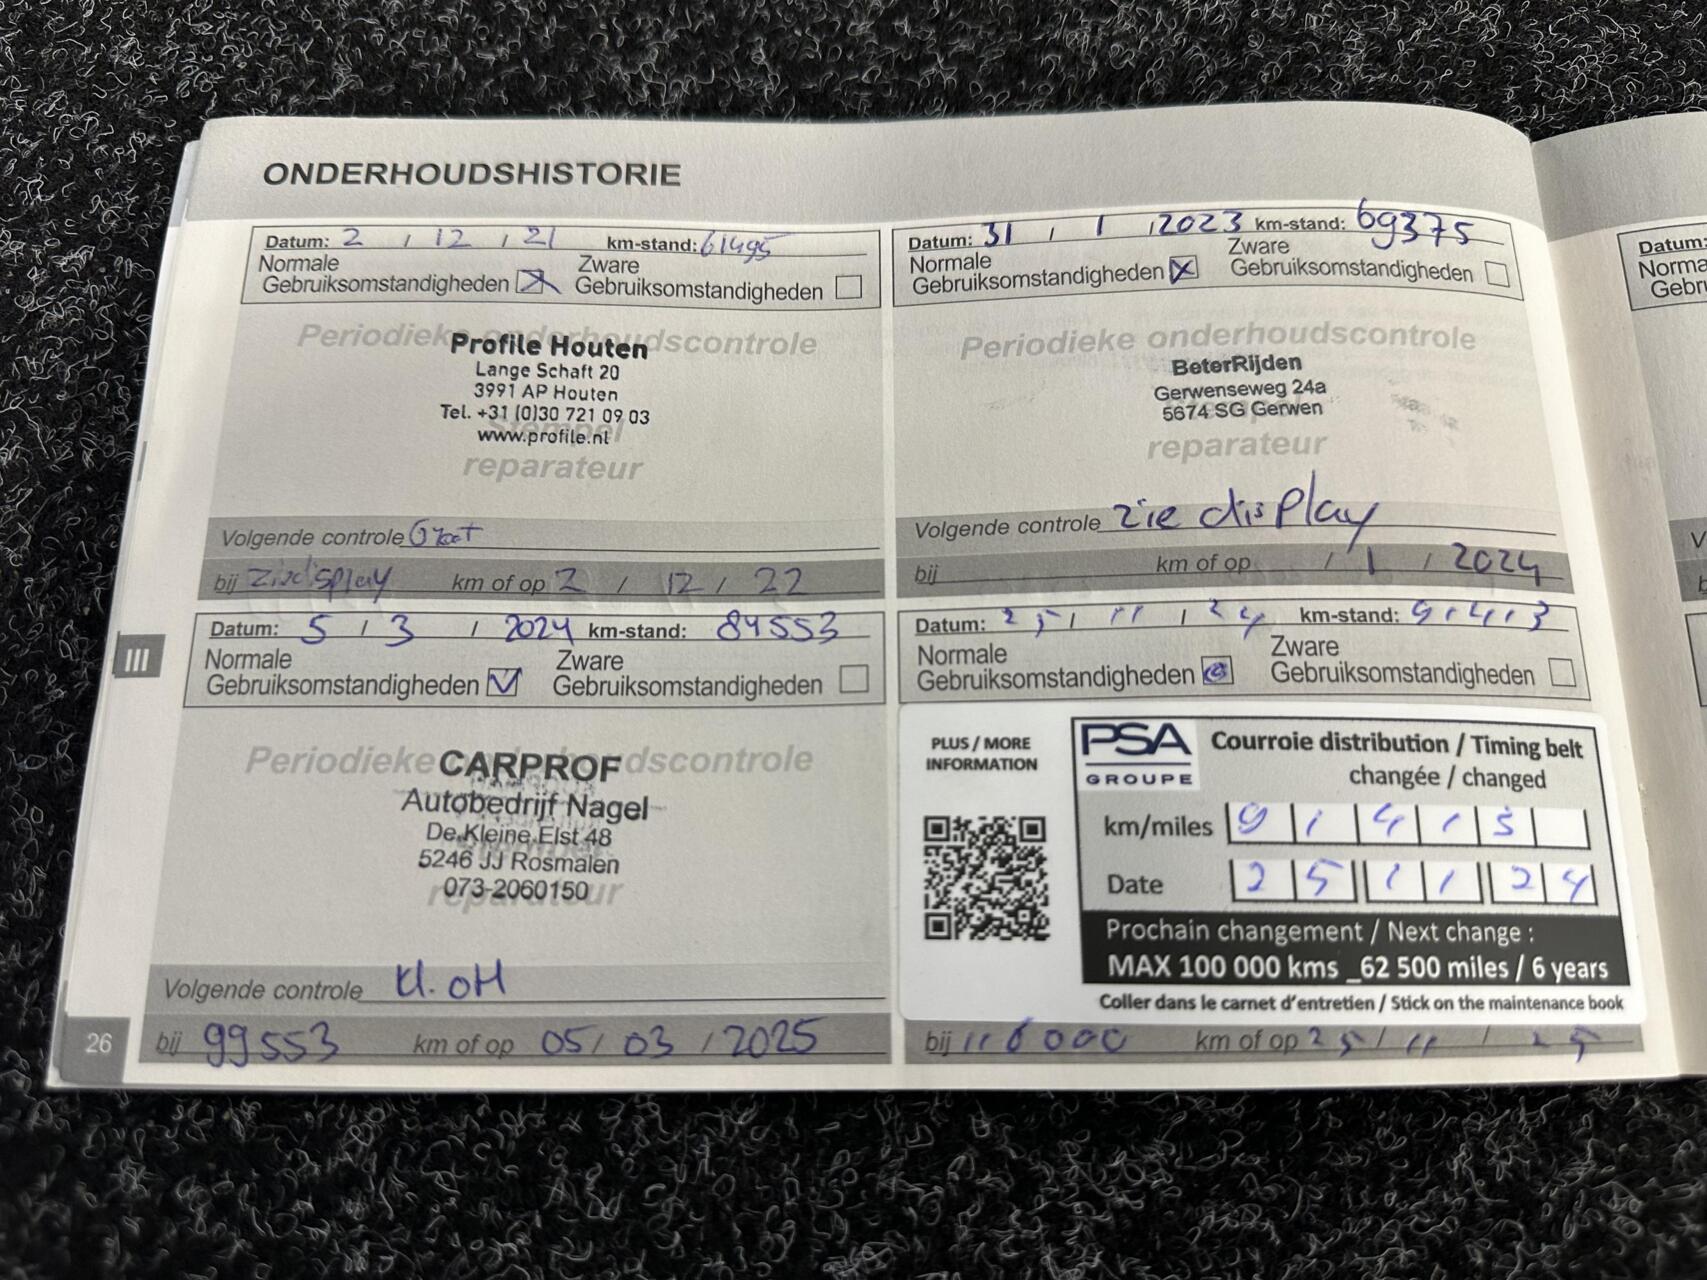 ONDERHOUDSHISTORIE
Datum: 2 / 12 / 21 km-stand: 61495
Normale Gebruiksomstandigheden
Zware Gebruiksomstandigheden
Periodieke onderhoudscontrole
Profile Houten
Lange Schaft 20
3991 AP Houten
Tel. +31 (0)30 721 09 03
www.profile.nl
Stempel
reparateur
Volgende controle Groot
bij ziedisplay km of op 2 / 12 / 22
Datum: 31 / 1 / 2023 km-stand: 69375
Normale Gebruiksomstandigheden
Zware Gebruiksomstandigheden
Periodieke onderhoudscontrole
BeterRijden
Gerwenseweg 24a
5674 SG Gerwen
Stempel
reparateur
Volgende controle zie display
bij km of op / 1 / 2024
III
Datum: 5 / 3 / 2024 km-stand: 84553
Normale Gebruiksomstandigheden
Zware Gebruiksomstandigheden
Periodieke onderhoudscontrole
CARPROF
Autobedrijf Nagel
De Kleine Elst 48
5246 JJ Rosmalen
073-2060150
reparateur
Volgende controle kl. OH
bij 99553 km of op 05 / 03 / 2025
Datum: 25 / 11 / 24 km-stand:
Normale Gebruiksomstandigheden
Zware Gebruiksomstandigheden
PLUS / MORE
INFORMATION
PSA
GROUPE
Courroie distribution / Timing belt
changée / changed
km/miles 9 1 4 1 3
Date 2 5 1 1 2 4
Prochain changement / Next change :
MAX 100 000 kms _62 500 miles / 6 years
Coller dans le carnet d'entretien / Stick on the maintenance book
bij 116000 km of op 25 / 11 / 25
26
Datum: